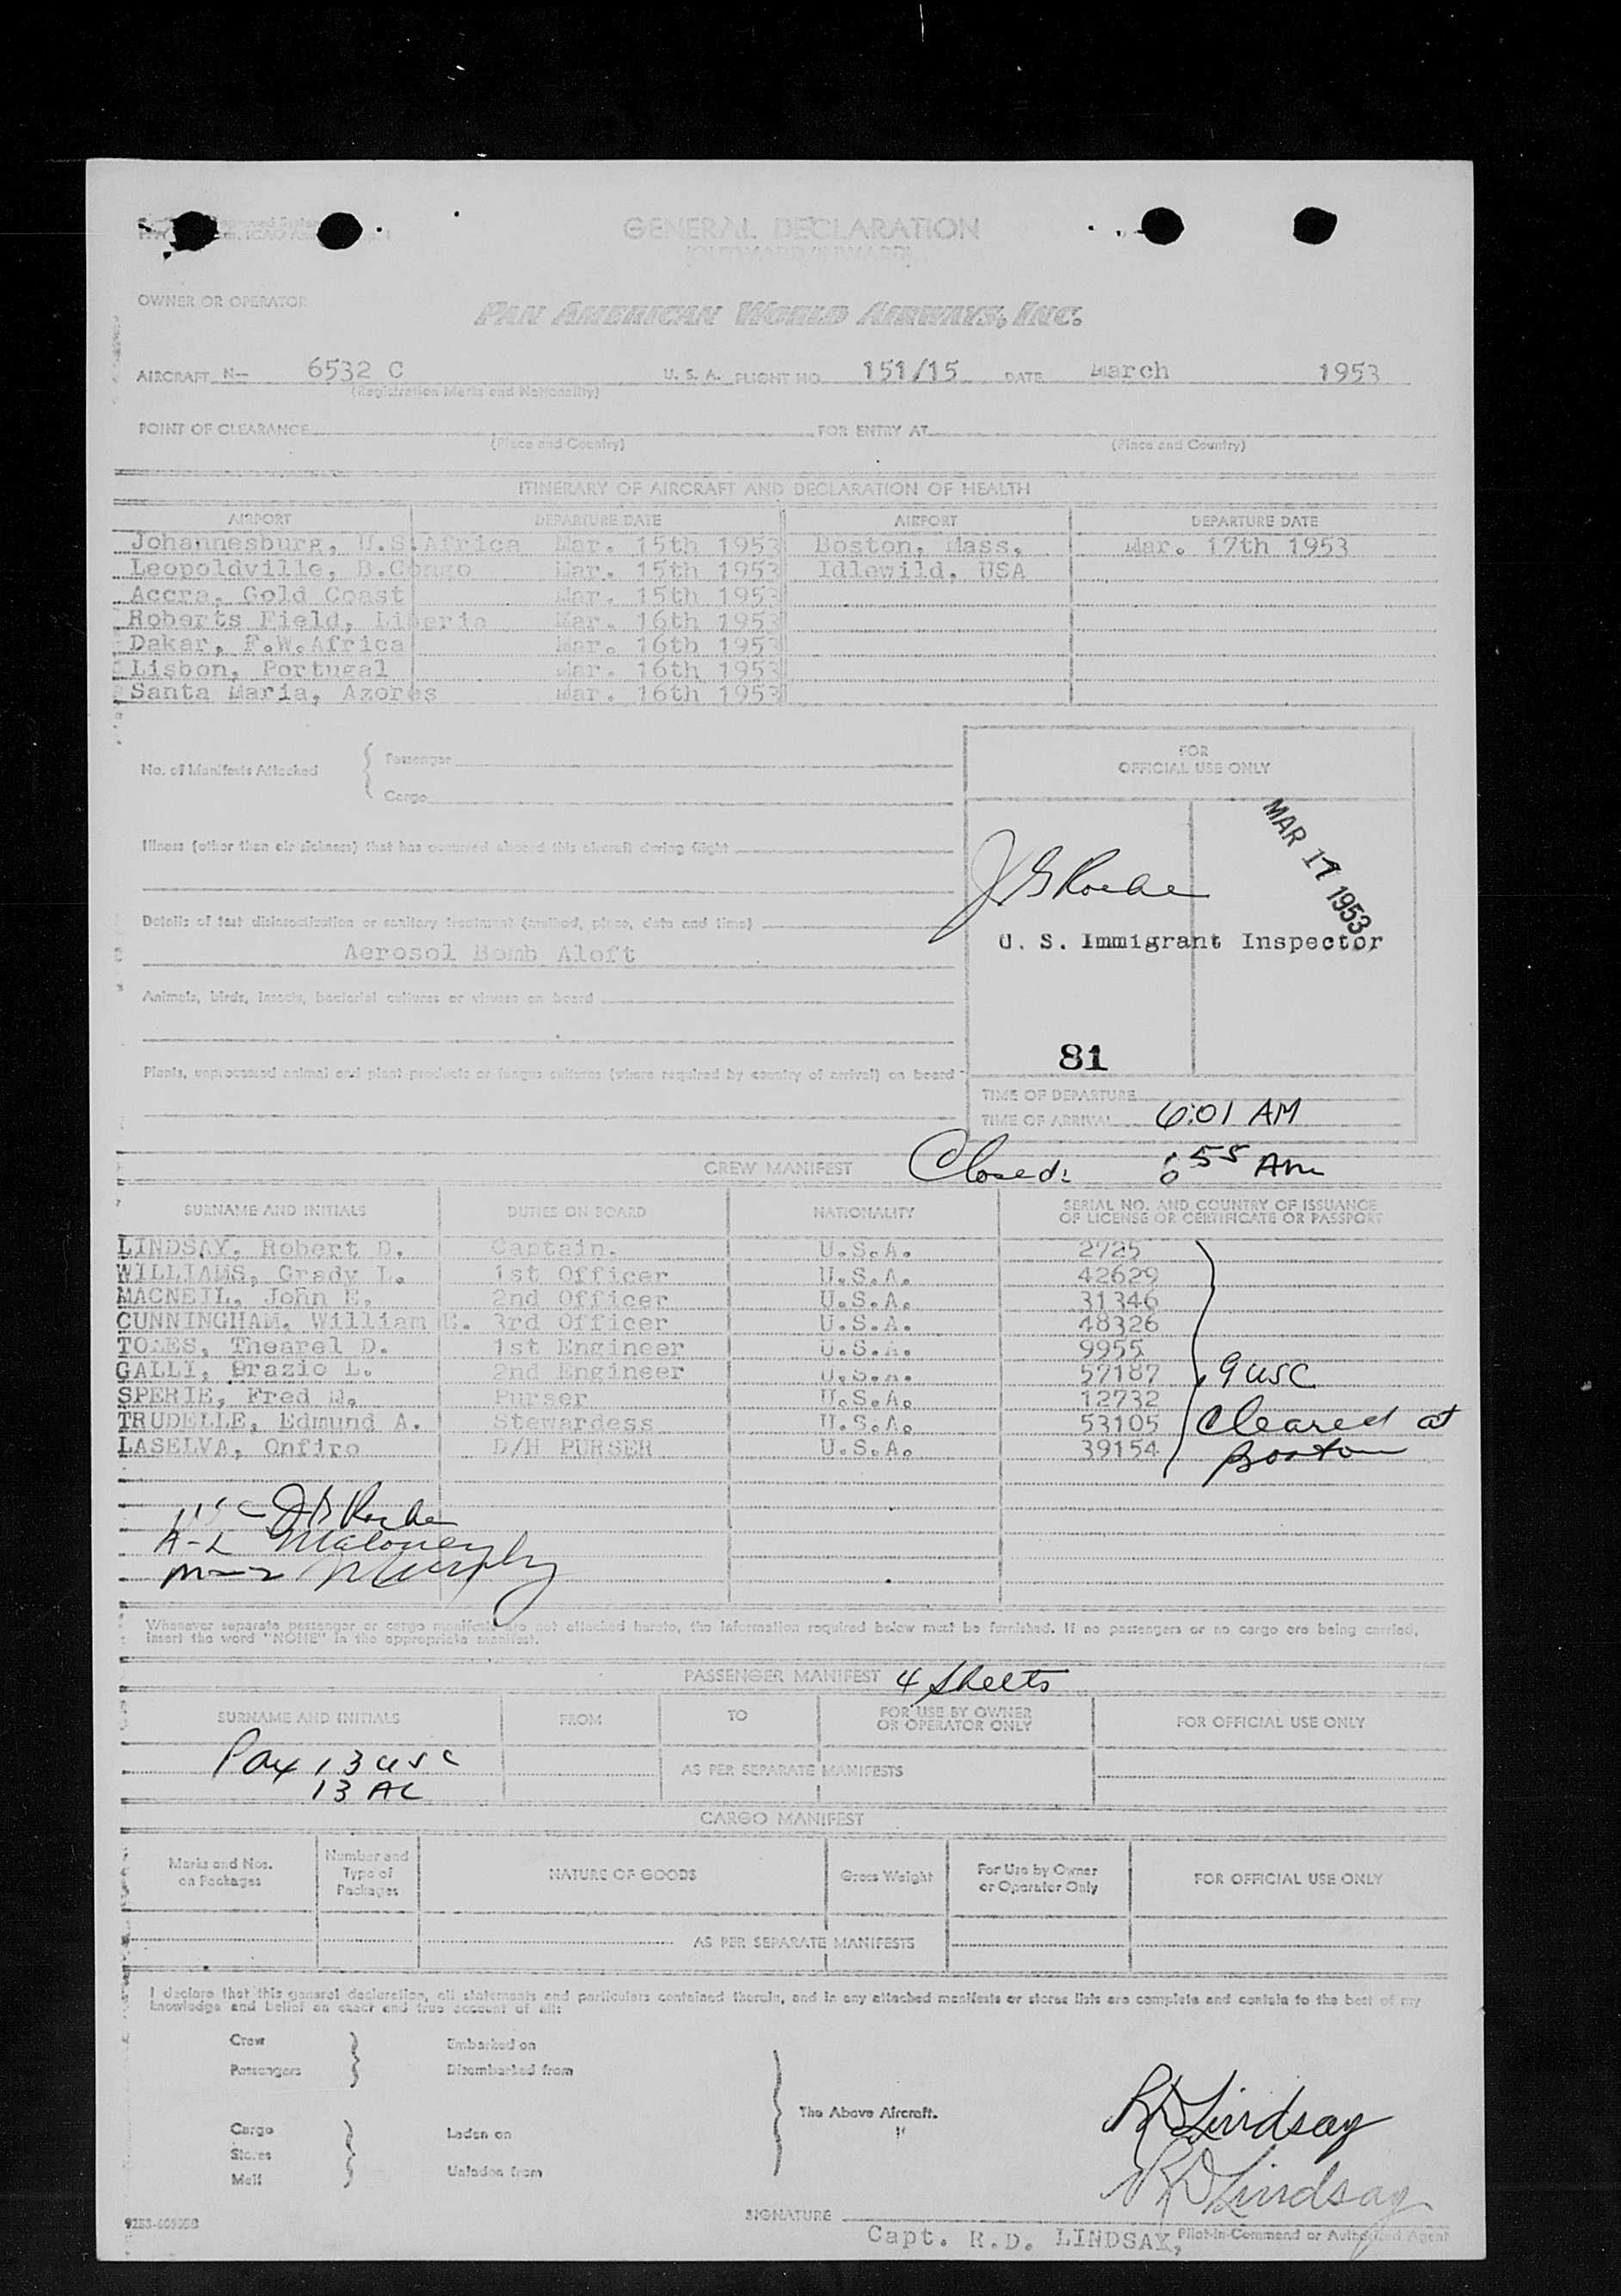 GENERAL DECLARATION
(OUTWARD/INWARD)
OWNER OR OPERATOR
PAN AMERICAN WORLD AIRWAYS, INC.
AIRCRAFT N— 6532 C U. S. A. FLIGHT NO. 151/15 DATE March 1953
(Registration Marks and Nationality)
POINT OF CLEARANCE FOR ENTRY AT
(Place and Country) (Place and Country)
ITINERARY OF AIRCRAFT AND DECLARATION OF HEALTH
AIRPORT DEPARTURE DATE AIRPORT DEPARTURE DATE
Johannesburg, U.S.Africa Mar. 15th 1953 Boston, Mass, Mar. 17th 1953
Leopoldville, B.Congo Mar. 15th 1953 Idlewild, USA
Accra, Gold Coast Mar. 15th 1953
Roberts Field, Liberia Mar. 16th 1953
Dakar, F.W.Africa Mar. 16th 1953
Lisbon, Portugal Mar. 16th 1953
Santa Maria, Azores Mar. 16th 1953
No. of Manifests Attached
Passenger
Cargo
FOR
OFFICIAL USE ONLY
MAR 17 1953
Illness (other than air sickness) that has occurred aboard this aircraft during flight
J G Roche
Details of last disinsectization or sanitary treatment (method, place, date and time)
U. S. Immigrant Inspector
Aerosol Bomb Aloft
Animals, birds, insects, bacterial cultures or viruses on board
81
Plants, unprocessed animal and plant products or fungus cultures (where required by country of arrival) on board
TIME OF DEPARTURE
TIME OF ARRIVAL 6:01 AM
CREW MANIFEST Closed: 6 55 Am
SURNAME AND INITIALS DUTIES ON BOARD NATIONALITY SERIAL NO. AND COUNTRY OF ISSUANCE
OF LICENSE OR CERTIFICATE OR PASSPORT
LINDSAY, Robert D. Captain. U.S.A. 2725
WILLIAMS, Grady L. 1st Officer U.S.A. 42629
MACNEIL, John E. 2nd Officer U.S.A. 31346
CUNNINGHAM, William 3rd Officer U.S.A. 48326
Thearel D. 1st Engineer U.S.A. 9955
GALLI, L. 2nd Engineer U.S.A. 57187 9 USC
SPERIE, Fred Purser U.S.A. 12732
TRUDELLE, Edmund A. Stewardess U.S.A. 53105 Cleared at
LASELVA, Onfiro D/H PURSER U.S.A. 39154 Boston
Roche
Maloney
Murphy
Whenever separate passenger or cargo manifests are not attached hereto, the information required below must be furnished. If no passengers or no cargo are being carried,
insert the word "NONE" in the appropriate manifest.
PASSENGER MANIFEST 4 sheets
SURNAME AND INITIALS FROM TO FOR USE BY OWNER
OR OPERATOR ONLY FOR OFFICIAL USE ONLY
Pax 13 USC
AS PER SEPARATE MANIFESTS
13 AL
CARGO MANIFEST
Marks and Nos.
on Packages Number and
Type of
Packages NATURE OF GOODS Gross Weight For Use by Owner
or Operator Only FOR OFFICIAL USE ONLY
AS PER SEPARATE MANIFESTS
I declare that this general declaration, all statements and particulars contained therein, and in any attached manifests or stores lists are complete and contain to the best of my
knowledge and belief an exact and true account of all:
Crew Embarked on
Passengers Disembarked from
The Above Aircraft.
Cargo Laden on
Stores
Mail Unladen from
RDLindsay
RDLindsay
SIGNATURE
Capt. R.D. LINDSAY, Pilot-in-Command or Authorized Agent